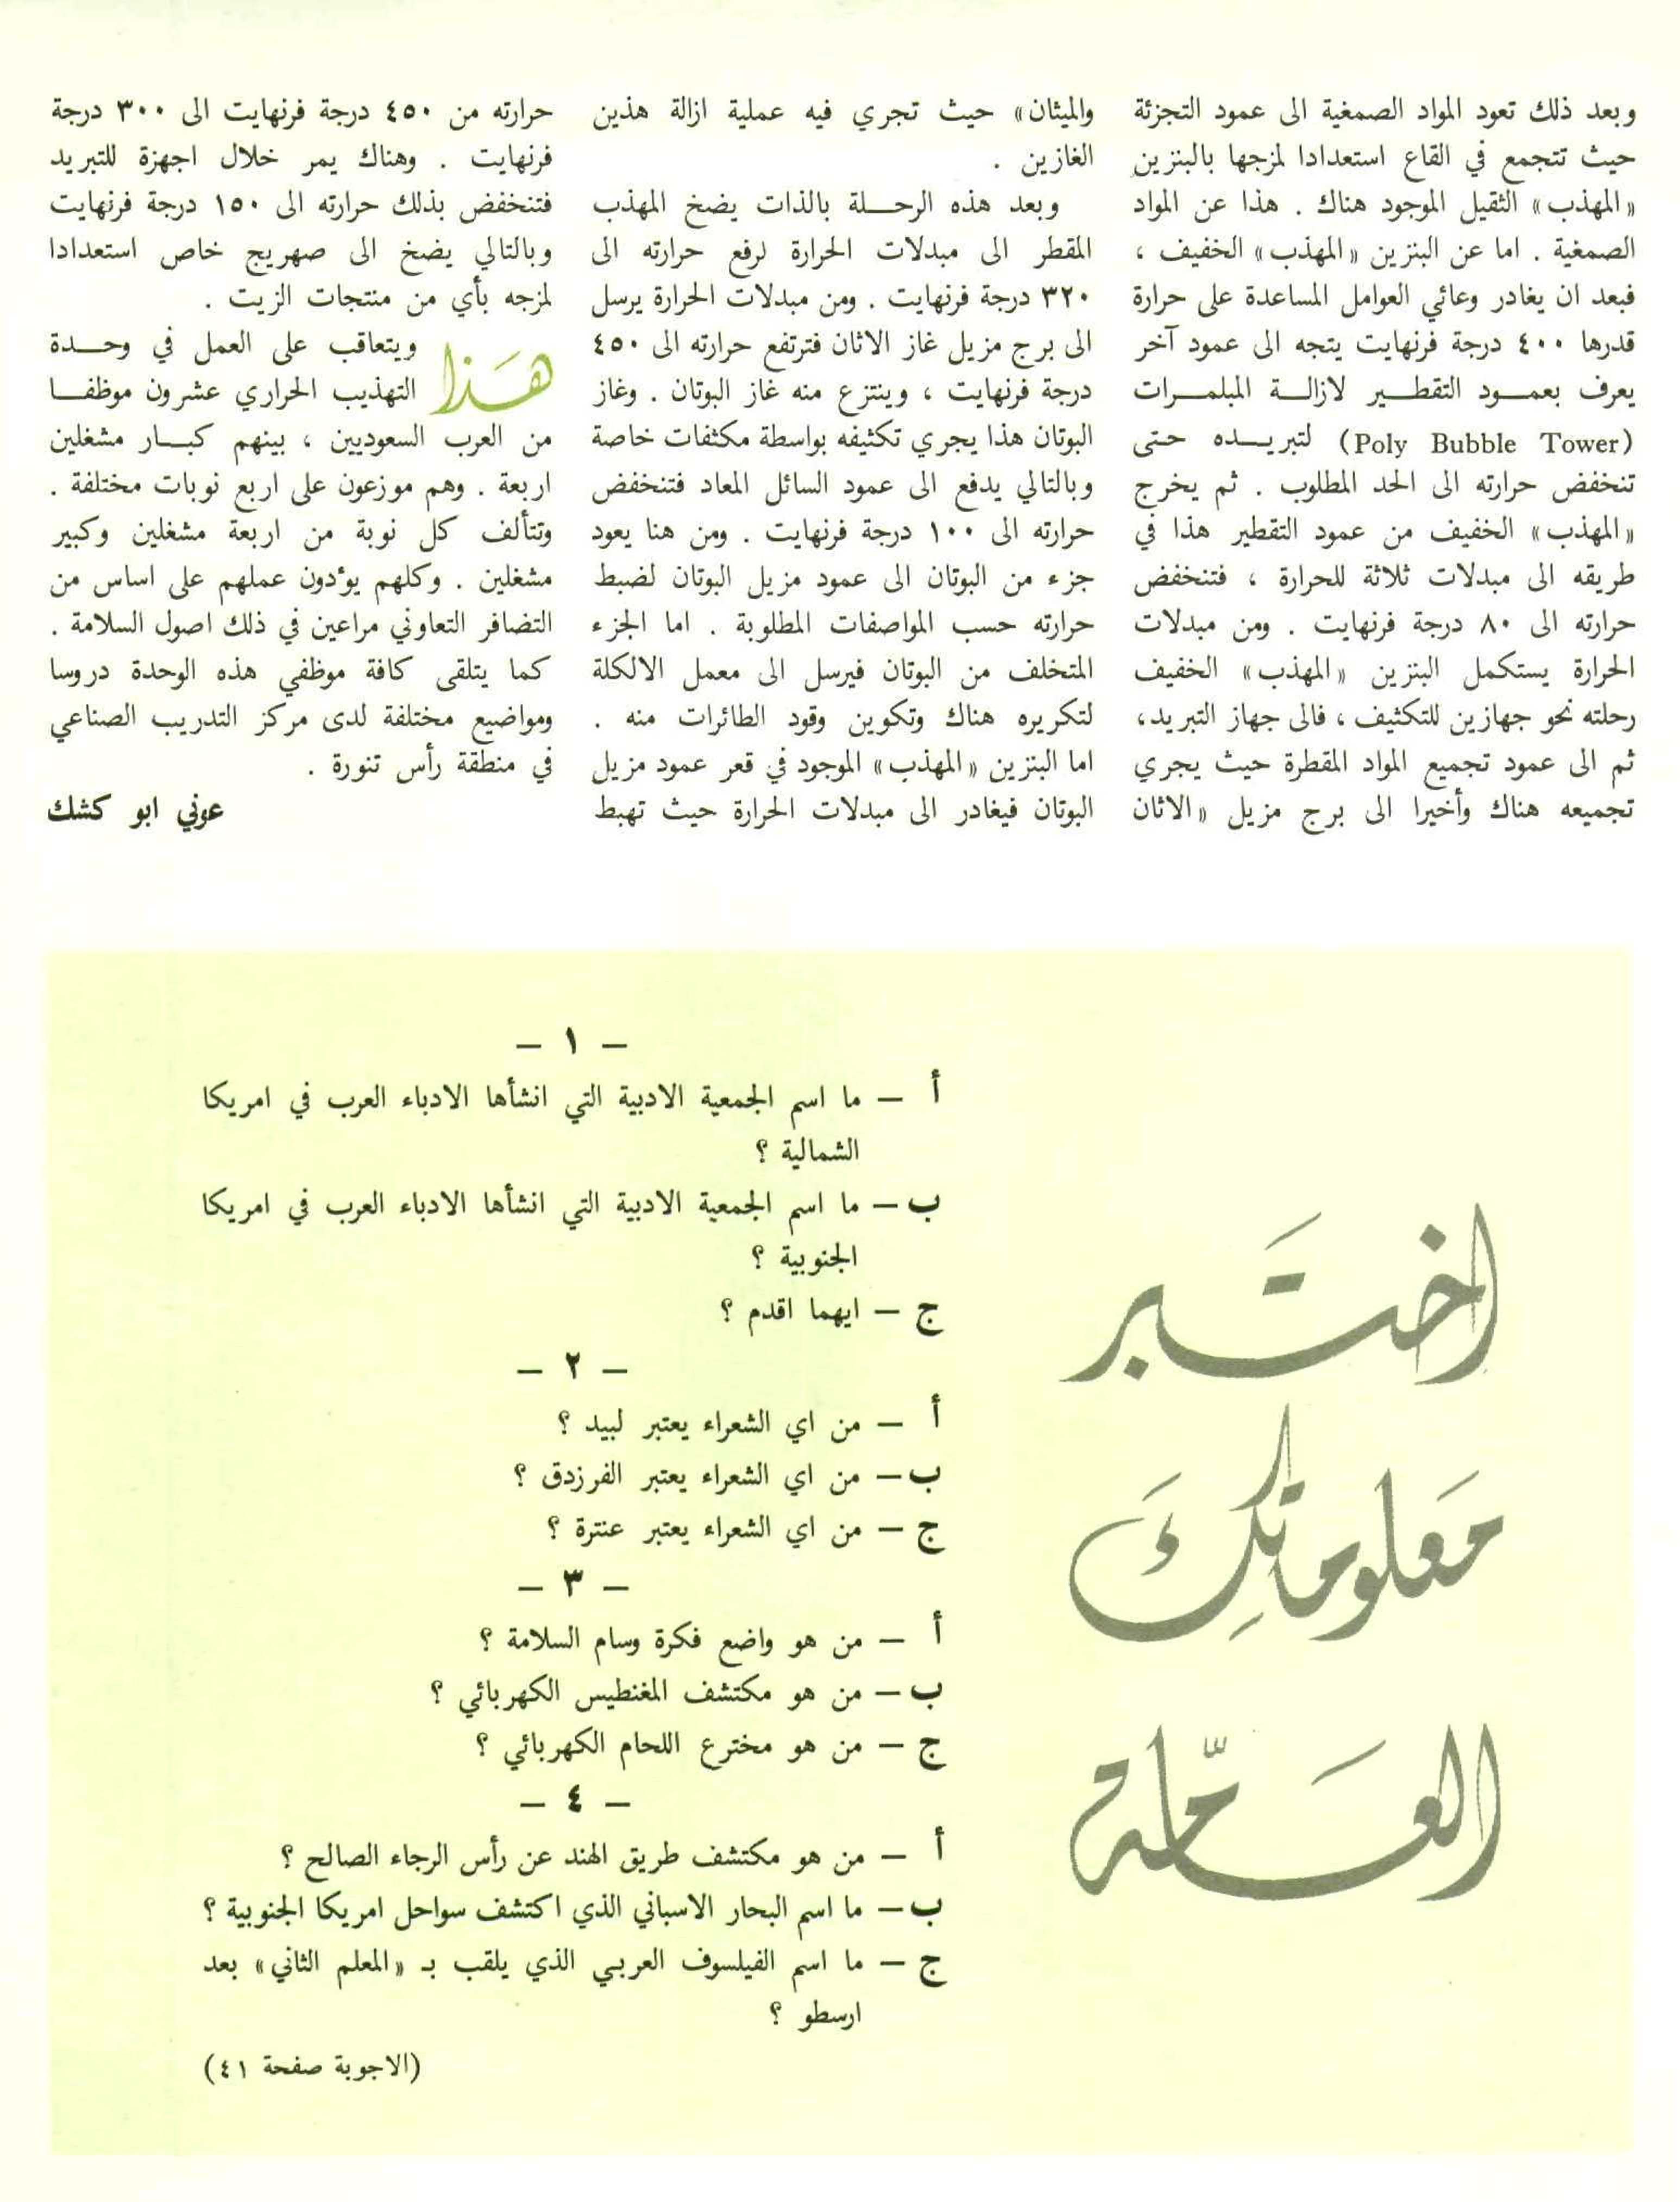 وبعد ذلك تعود المواد الصمغية الى عمود التجزئة
حيث تتجمع في القاع استعدادا لمزجها بالبنزين
«المهذب» الثقيل الموجود هناك . هذا عن المواد
الصمغية . اما عن البنزين «المهذب» الخفيف ،
فبعد ان يغادر وعائي العوامل المساعدة على حرارة
قدرها ٤٠٠ درجة فرنهايت يتجه الى عمود آخر
يعرف بعمـــود التقطـــير لازالـــة المبلمـــرات
(Poly Bubble Tower) لتبريـــده حـتى
تنخفض حرارته الى الحد المطلوب . ثم يخرج
«المهذب» الخفيف من عمود التقطير هذا في
طريقه الى مبدلات ثلاثة للحرارة ، فتنخفض
حرارته الى ٨٠ درجة فرنهايت . ومن مبدلات
الحرارة يستكمل البنزين «المهذب» الخفيف
رحلته نحو جهازين للتكثيف ، فالى جهاز التبريد،
ثم الى عمود تجميع المواد المقطرة حيث يجري
تجميعه هناك وأخيرا الى برج مزيل «الاثان
والميثان» حيث تجري فيه عملية ازالة هذين
الغازين .
وبعد هذه الرحـــلة بالذات يضخ المهذب
المقطر الى مبدلات الحرارة لرفع حرارته الى
٣٢٠ درجة فرنهايت . ومن مبدلات الحرارة يرسل
الى برج مزيل غاز الاثان فترتفع حرارته الى ٤٥٠
درجة فرنهايت ، وينتزع منه غاز البوتان . وغاز
البوتان هذا يجري تكثيفه بواسطة مكثفات خاصة
وبالتالي يدفع الى عمود السائل المعاد فتنخفض
حرارته الى ١٠٠ درجة فرنهايت . ومن هنا يعود
جزء من البوتان الى عمود مزيل البوتان لضبط
حرارته حسب المواصفات المطلوبة . اما الجزء
المتخلف من البوتان فيرسل الى معمل الالكلة
لتكريره هناك وتكوين وقود الطائرات منه .
اما البنزين «المهذب» الموجود في قعر عمود مزيل
البوتان فيغادر الى مبدلات الحرارة حيث تهبط
حرارته من ٤٥٠ درجة فرنهايت الى ٣٠٠ درجة
فرنهايت . وهناك يمر خلال اجهزة للتبريد
فتنخفض بذلك حرارته الى ١٥٠ درجة فرنهايت
وبالتالي يضخ الى صهريج خاص استعدادا
لمزجه بأي من منتجات الزيت .
هَذا ويتعاقب على العمل في وحـــدة
التهذيب الحراري عشرون موظفـــا
من العرب السعوديين ، بينهم كبـــار مشغلين
اربعة . وهم موزعون على اربع نوبات مختلفة .
وتتألف كل نوبة من اربعة مشغلين وكبير
مشغلين . وكلهم يؤدون عملهم على اساس من
التضافر التعاوني مراعين في ذلك اصول السلامة .
كما يتلقى كافة موظفي هذه الوحدة دروسا
ومواضيع مختلفة لدى مركز التدريب الصناعي
في منطقة رأس تنورة .
عوني ابو كشك
اختَبر
مَعلوماتِكَ
العَامّة
– ١ –
أ – ما اسم الجمعية الادبية التي انشأها الادباء العرب في امريكا
الشمالية ؟
ب – ما اسم الجمعية الادبية التي انشأها الادباء العرب في امريكا
الجنوبية ؟
ج – ايهما اقدم ؟
– ٢ –
أ – من اي الشعراء يعتبر لبيد ؟
ب – من اي الشعراء يعتبر الفرزدق ؟
ج – من اي الشعراء يعتبر عنترة ؟
– ٣ –
أ – من هو واضع فكرة وسام السلامة ؟
ب – من هو مكتشف المغنطيس الكهربائي ؟
ج – من هو مخترع اللحام الكهربائي ؟
– ٤ –
أ – من هو مكتشف طريق الهند عن رأس الرجاء الصالح ؟
ب – ما اسم البحار الاسباني الذي اكتشف سواحل امريكا الجنوبية ؟
ج – ما اسم الفيلسوف العربي الذي يلقب بـ «المعلم الثاني» بعد
ارسطو ؟
(الاجوبة صفحة ٤١)